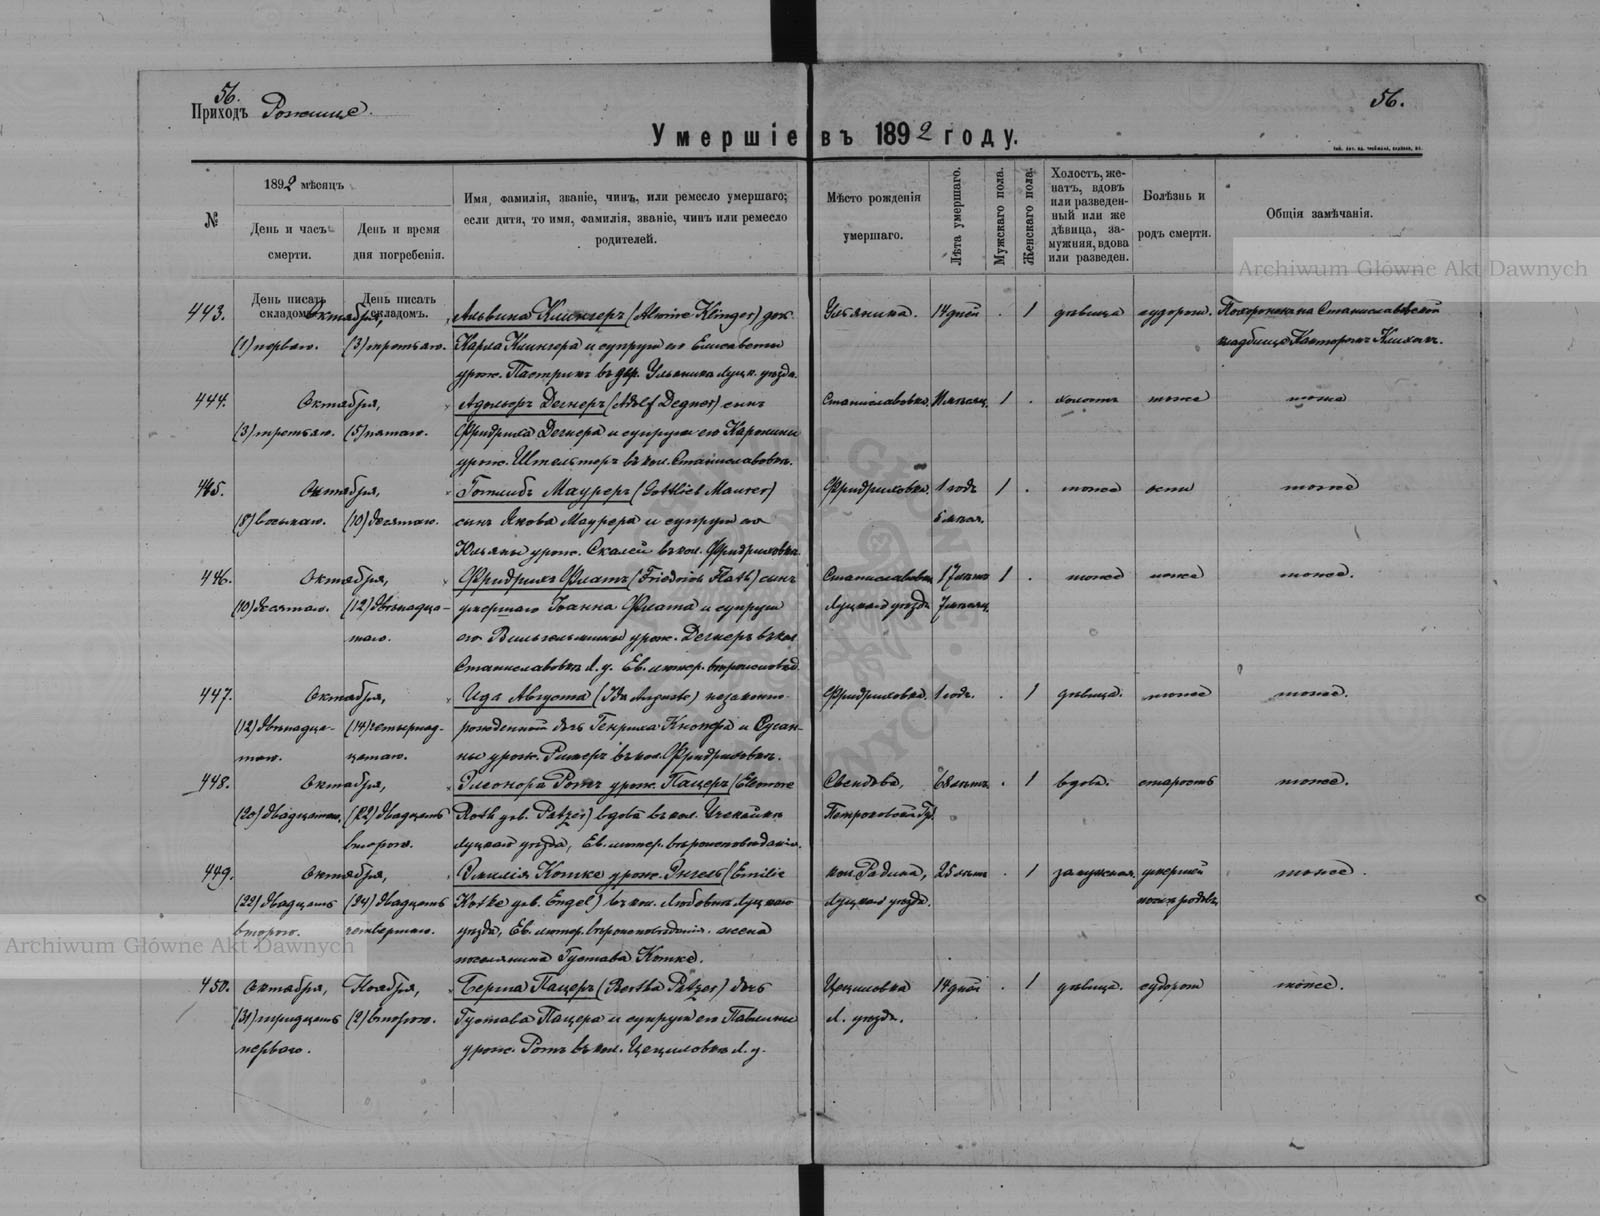 56.
Приходъ Рожище.
56.
Умершіе въ 1892 году.
№
1892 мѣсяцъ
День и часъ смерти.
День и время дня погребенія.
Имя, фамилія, званіе, чинъ, или ремесло умершаго;
если дитя, то имя, фамилія, званіе, чинъ или ремесло
родителей.
Мѣсто рожденія
умершаго.
Лѣта умершаго.
Мужскаго пола.
Женскаго пола.
Холостъ, же-
натъ, вдовъ
или разведен-
ный или же
дѣвица, за-
мужняя, вдова
или разведен.
Болѣзнь и
родъ смерти.
Общія замѣчанія.
Archiwum Główne Akt Dawnych
День писать складомъ.
День писать складомъ.
443. Октября, Альвина Клингеръ (Alwine Klinger) доч. Ульяника. 14 дней . 1 дѣвица судорог. на Станиславовской
(1) перваго. (3) третьяго. Карла Клингера и супруги его Елисаветы кладбищѣ Канторомъ
урож. въ дер. Ульяника Луцк. уѣзда.
444. Октября, Адольфъ Дегнеръ (Adolf Degner) сынъ Станиславовка. 11 мѣсяц. 1 . холостъ тоже тоже
(3) третьяго. (5) пятаго. Фридриха Дегнера и супруги его Каролины
урож. въ кол. Станиславовкѣ.
445. Октября, Готлибъ Мауреръ (Gottlieb Maurer) Фридриховка. 1 годъ 1 . тоже оспы тоже
(8) восьмаго. (10) десятаго. сынъ Якова Маурера и супруги его 5 мѣсяц.
Юльяны урож. въ кол. Фридриховкѣ.
446. Октября, Фридрихъ Флатъ (Friedrich Flath) сынъ Станиславовка 17 лѣтъ 1 . тоже тоже тоже.
(10) десятаго. (12) двѣнадца- умершаго Іоанна Флата и супруги Луцкаго уѣзда 7 мѣсяц.
таго. его Вильгельмины урож. Дегнеръ въ кол.
Станиславовкѣ Л. у. Ев. лютер. вѣроисповѣд.
447. Октября, Ида Августа (Ida Auguste) незаконно- Фридриховка. 1 годъ. . 1 дѣвица. тоже тоже.
(12) двѣнадца- (14) четырнад- рожденной дочь Генриха и Сусан-
таго. цатаго. ны урож. въ кол. Фридриховкѣ.
448. Октября, Элеонора Ротъ урож. Пацеръ (Eleonore 68 лѣтъ. . 1 вдова. старость тоже.
(20) двадцатаго. (22) двадцать Roth geb. Patzer) вдова въ кол. Петроковской Гу.
втораго. Луцкаго уѣзда, Ев. лютер. вѣроисповѣданія.
449. Октября, Эмилія Котке урож. Энгель (Emilie кол. Радина, 25 лѣтъ . 1 замужняя. умершей тоже.
(22) двадцать (24) двадцать Kotke geb. Engel) въ кол. Луцкаго Луцкаго уѣзда. послѣ родовъ.
втораго. четвертаго. уѣзда, Ев. лютер. вѣроисповѣданія. жена
поселянина Густава Котке.
Archiwum Główne Akt Dawnych
450. Октября, Ноября, Берта Пацеръ (Bertha Patzer) дочь Цециловка 14 дней . 1 дѣвица. судорог тоже.
(31) тридцать (2) втораго. Густава Пацера и супруги его Павлины Л. уѣзда.
перваго. урож. Ротъ въ кол. Цециловкѣ Л. у.